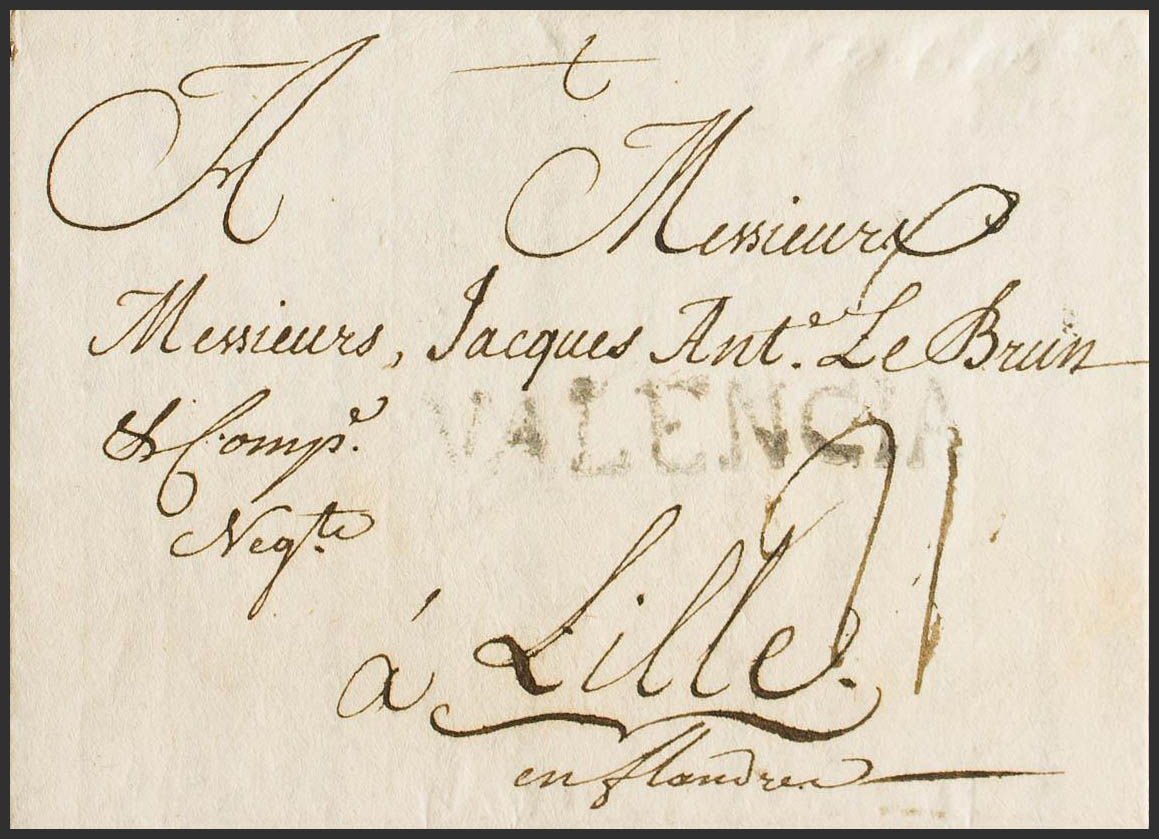 A Messieurs
Messieurs, Jacques Ant.e Le Brun
& Comp.e
VALENCIA
Neg.te
21
à Lille.
en flandres